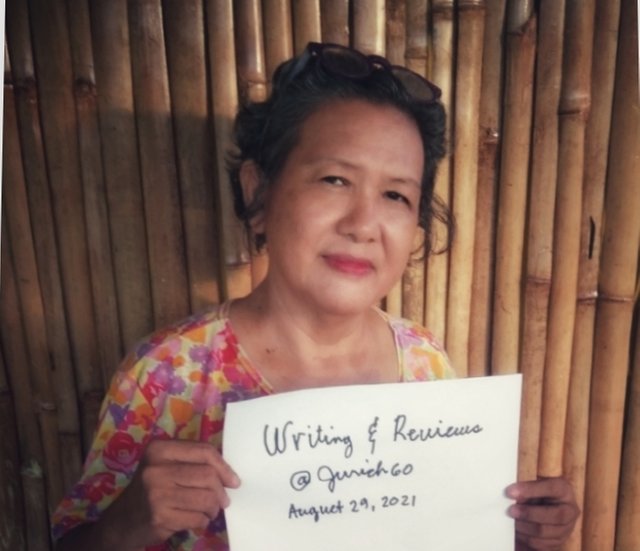 Writing & Reviews
@Jurich60
August 29, 2021